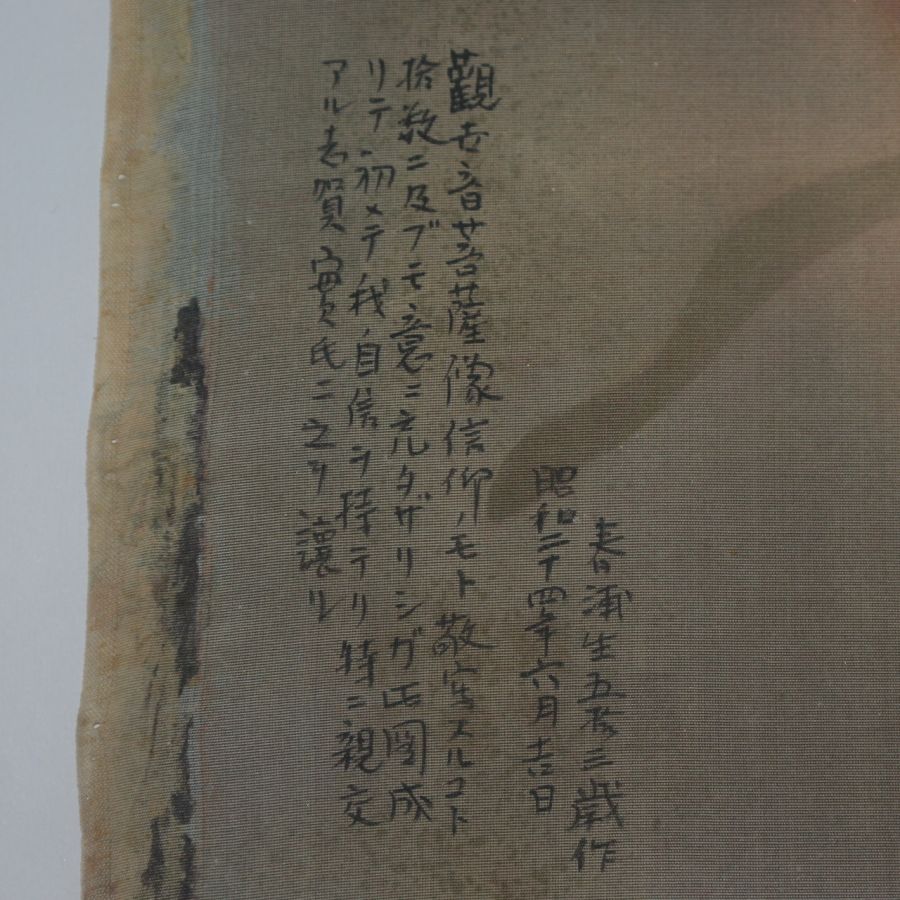 春浦生五拾三歳作
昭和二十四年六月吉日
觀世音菩薩像信仰ノモト敬寫スルコト
拾数ニ及ブモ意ニ充タザリシガ此圖成
リテ初メテ我自信ヲ持テリ特ニ親交
アル志賀實氏ニ之ヲ譲ル